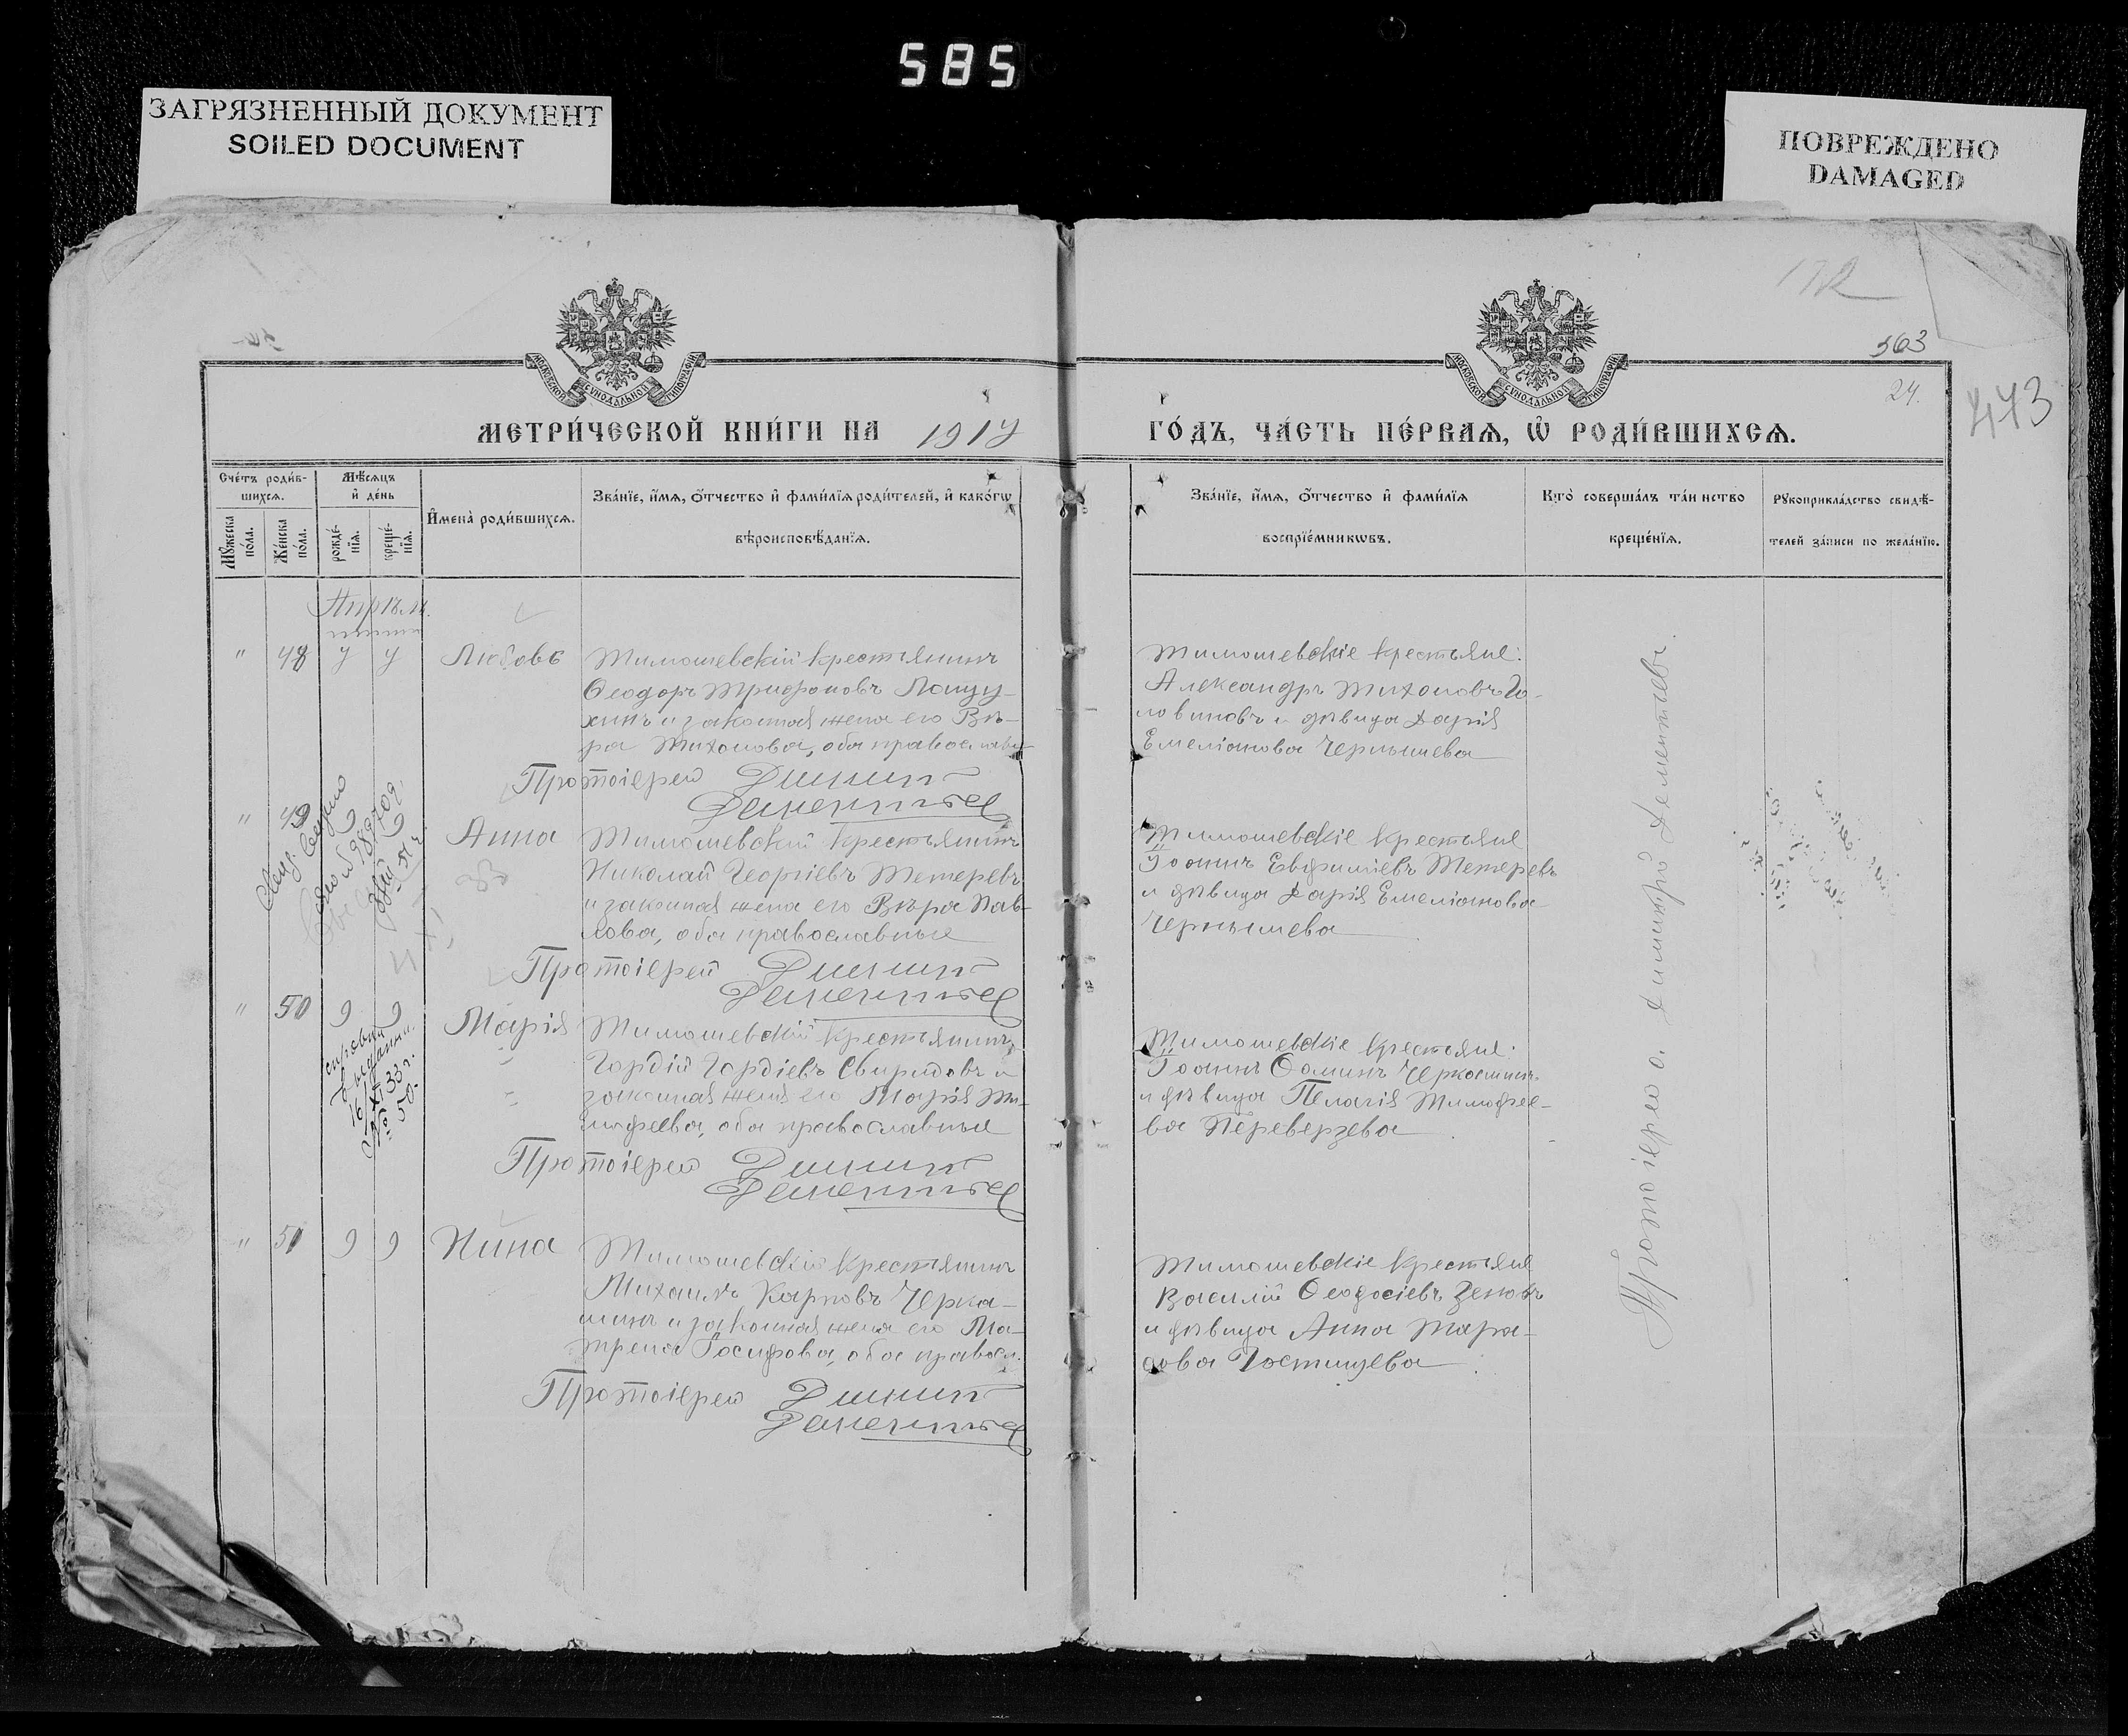 585
ЗАГРЯЗНЕННЫЙ ДОКУМЕНТ
SOILED DOCUMENT
ПОВРЕЖДЕНО
DAMAGED
172
563
24.
473
МОСКОВСКОЙ СУНОДАЛЬНОЙ ТИПОГРАФІИ
МОСКОВСКОЙ СУНОДАЛЬНОЙ ТИПОГРАФІИ
МЕТРИ́ЧЕСКОЙ КНИ́ГИ НА 1914
ГО́ДЪ, ЧА́СТЬ ПЕ́РВАѦ, Ѡ҆ РОДИ́ВШИХСѦ.
Сче́тъ роди́в-
шихсѧ.
Мꙋ́жеска по́ла.
Же́нска по́ла.
Мѣ́сѧцъ
и҆ де́нь
рожде́-нїѧ.
креще́-нїѧ.
И҆мена̀ роди́вшихсѧ.
Зва́нїе, и҆́мѧ, ѻ҆́тчество и҆ фами́лїѧ роди́телей, и҆ како́гѡ
вѣроисповѣ́данїѧ.
Зва́нїе, и҆́мѧ, ѻ҆́тчество и҆ фами́лїѧ
воспрїе́мникѡвъ.
Кто̀ соверша́лъ та́инство
креще́нїѧ.
Рꙋкоприкла́дство свидѣ́-
телей за́писи по жела́нїю.
Апрѣль.
" 48 Любовь
Тимошевскій крестьянинъ
Ѳеодоръ Трифоновъ Лащу-
хинъ и законная жена его Вѣ-
ра Тихонова, оба православн
Протоіерей Димит
Дементьев
Тимошевскіе крестьяне:
Александръ Тихоновъ Го-
ловиновъ и дѣвица Дарія
Емеліанова Чернышева
" 49 9 9 Анна
Тимошевскій крестьянинъ
Николай Георгіевъ Тетеревъ
и законная жена его Вѣра Пав-
лова, оба православные
Протоіерей Димит
Дементьев
Тимошевскіе крестьяне
Іоаннъ Евфиміевъ Тетеревъ
и дѣвица Дарія Емеліанова
Чернышева
" 50 9 9 Марія
справка
выдана
16/XI 33 г.
№ 50.
Тимошевскій крестьянинъ
Гордій Гордіевъ Свиридовъ и
законная жена его Марія Ти-
мофеева, оба православные
Протоіерей Димит
Дементьев
Тимошевскіе крестьяне:
Іоаннъ Ѳоминъ Черкашинъ
и дѣвица Пелагія Тимофее-
ва Переверзева
" 51 9 9 Нина
Тимошевскій крестьянинъ
Михаилъ Карповъ Черка-
шинъ и законная жена его Ма-
трена Іосифова, оба правосл.
Протоіерей Димит
Дементьев
Тимошевскіе крестьяне
Василій Ѳеодосіевъ Зеновъ
и дѣвица Анна Тара-
сова Гостищева
Протоіерей о. Димитрій Дементьевъ.